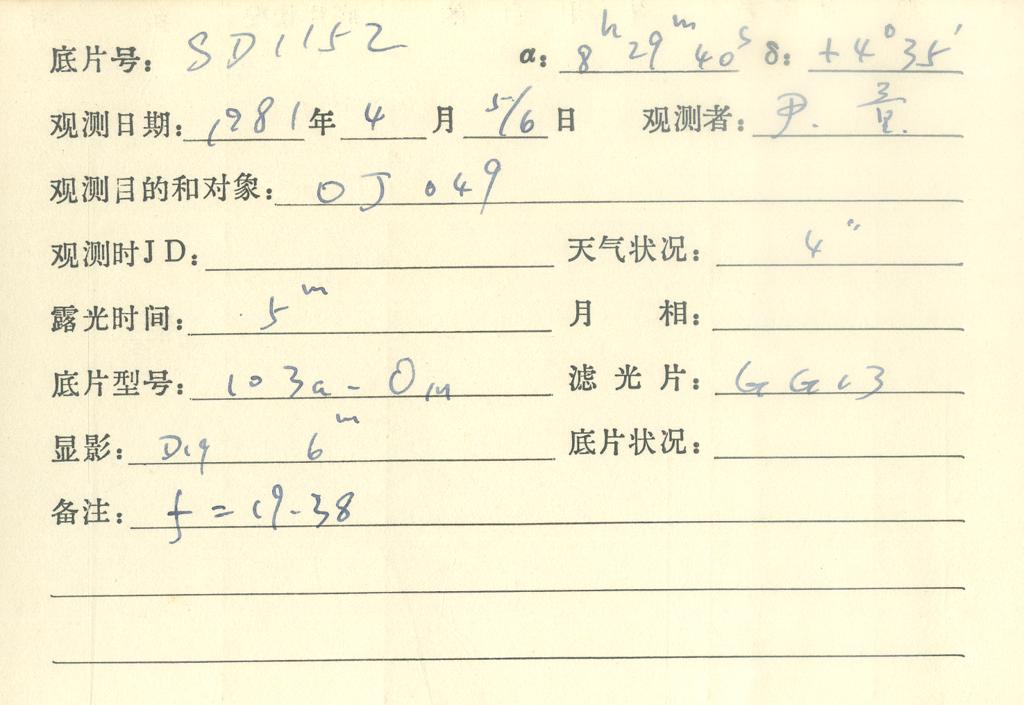 底片号: SD1152 α: 8h 29m 40s δ: +4° 35′
观测日期: 1981年 4 月 5/6 日 观测者: 尹.
观测目的和对象: OJ 049
观测时JD: 天气状况: 4″
露光时间: 5m 月 相:
底片型号: 103a-O 滤光片: GG13
显影: D19 6m 底片状况:
备注: f = 19.38